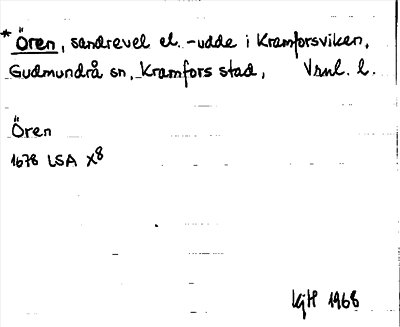 * Ören, sandrevel el. -udde i Kramforsviken,
Gudmundrå sn, Kramfors stad, Vrnl. l.
Ören
1678 LSA X8
KjH 1968